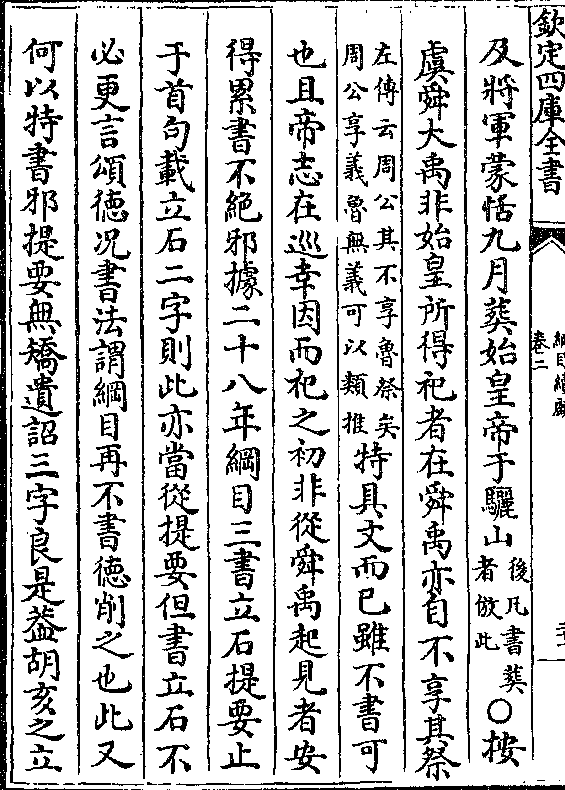 欽定四庫全書
卷二
及將軍蒙恬九月葬始皇帝于驪山後凡書葬者倣此○按
虞舜大禹非始皇所得祀者在舜禹亦自不享其祭
左傳云周公其不享魯祭矣周公享義魯無義可以類推特具文而已雖不書可
也且帝志在巡幸因而祀之初非從舜禹起見者安
得累書不絕邪據二十八年綱目三書立石提要止
于首句載立石二字則此亦當從提要但書立石不
必更言頌德况書法謂綱目再不書德削之也此又
何以特書邪提要無矯遺詔三字良是葢胡亥之立